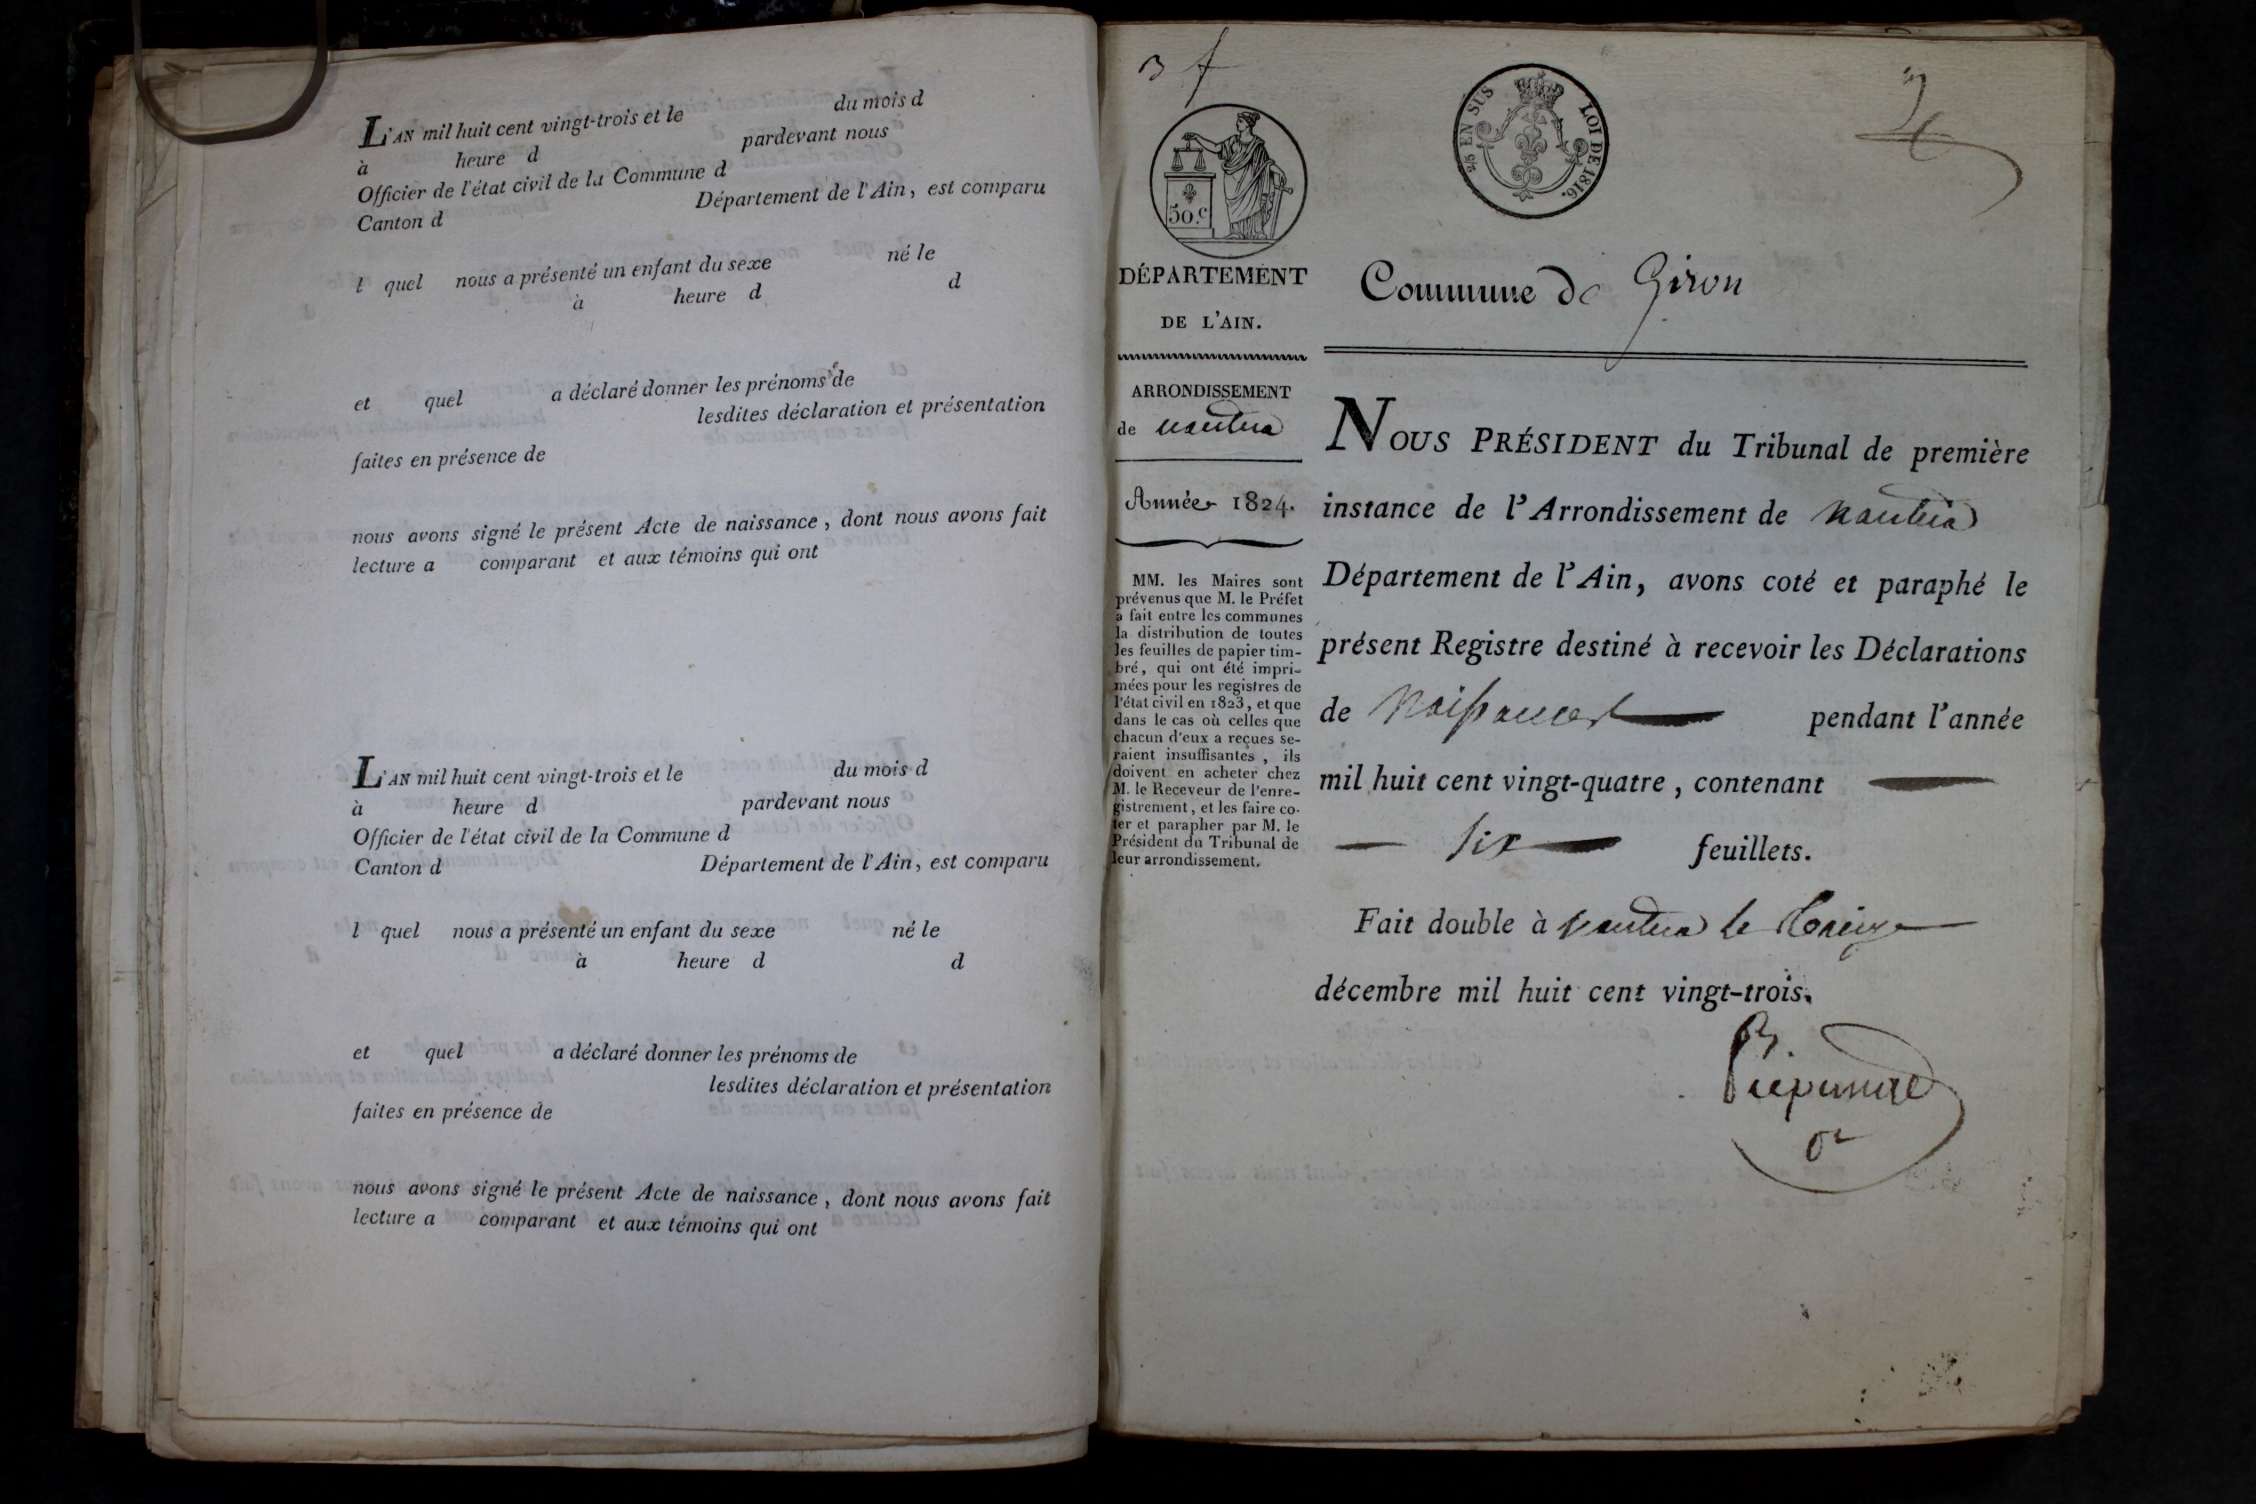 L'AN mil huit cent vingt-trois et le du mois d
à heure d pardevant nous
Officier de l'état civil de la Commune d
Canton d Département de l'Ain, est comparu
l quel nous a présenté un enfant du sexe né le
à heure d d
et quel a déclaré donner les prénoms de
lesdites déclaration et présentation
faites en présence de
nous avons signé le présent Acte de naissance, dont nous avons fait
lecture a comparant et aux témoins qui ont
L'AN mil huit cent vingt-trois et le du mois d
à heure d pardevant nous
Officier de l'état civil de la Commune d
Canton d Département de l'Ain, est comparu
l quel nous a présenté un enfant du sexe né le
à heure d d
et quel a déclaré donner les prénoms de
lesdites déclaration et présentation
faites en présence de
nous avons signé le présent Acte de naissance, dont nous avons fait
lecture a comparant et aux témoins qui ont
50.c
EN SUS LOI DE 1816.
DÉPARTEMENT
DE L'AIN.
ARRONDISSEMENT
de nantua
Année 1824.
MM. les Maires sont
prévenus que M. le Préfet
a fait entre les communes
la distribution de toutes
les feuilles de papier tim-
bré, qui ont été impri-
mées pour les registres de
l'état civil en 1823, et que
dans le cas où celles que
chacun d'eux a reçues se-
raient insuffisantes, ils
doivent en acheter chez
M. le Receveur de l'enre-
gistrement, et les faire co-
ter et parapher par M. le
Président du Tribunal de
leur arrondissement.
Commune de Giron
NOUS PRÉSIDENT du Tribunal de première
instance de l'Arrondissement de Nantua
Département de l'Ain, avons coté et paraphé le
présent Registre destiné à recevoir les Déclarations
de Naissances pendant l'année
mil huit cent vingt-quatre, contenant
six feuillets.
Fait double à nantua le
décembre mil huit cent vingt-trois.